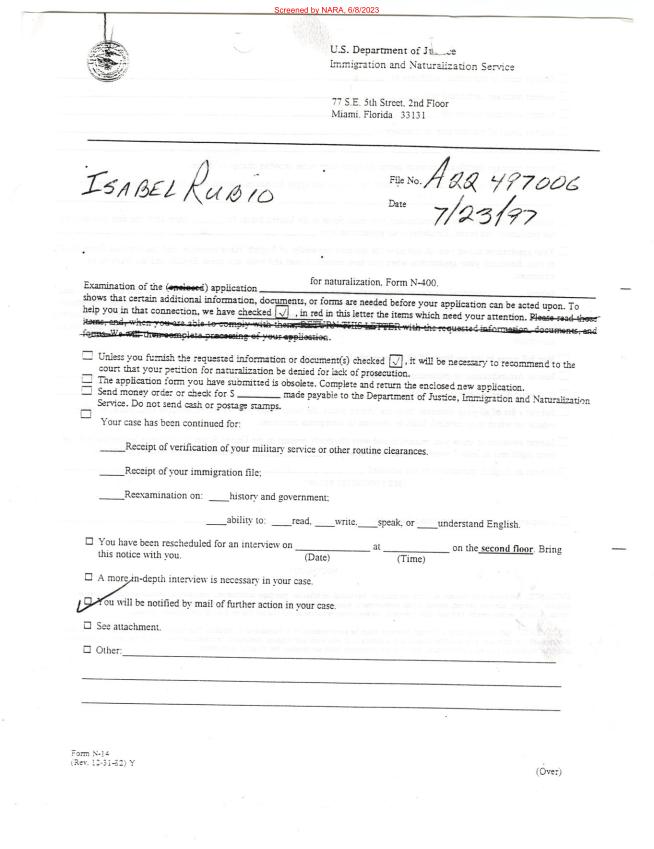 Screened by NARA, 6/8/2023
U.S. Department of Justice
Immigration and Naturalization Service
77 S.E. 5th Street, 2nd Floor
Miami, Florida 33131
ISABEL RUBIO
File No. A22 497006
Date 7/23/97
Examination of the (enclosed) application ____________ for naturalization, Form N-400.
shows that certain additional information, documents, or forms are needed before your application can be acted upon. To
help you in that connection, we have checked ☑, in red in this letter the items which need your attention. Please read those
items, and, when you are able to comply with them, RETURN THIS LETTER with the requested information, documents, and
forms. We will then complete processing of your application.
☐ Unless you furnish the requested information or document(s) checked ☑, it will be necessary to recommend to the
court that your petition for naturalization be denied for lack of prosecution.
☐ The application form you have submitted is obsolete. Complete and return the enclosed new application.
☐ Send money order or check for $ ________ made payable to the Department of Justice, Immigration and Naturalization
Service. Do not send cash or postage stamps.
☐
Your case has been continued for:
_____Receipt of verification of your military service or other routine clearances.
_____Receipt of your immigration file;
_____Reexamination on: ____history and government;
____ability to: ____read, ____write, ____speak, or ____understand English.
☐ You have been rescheduled for an interview on ______________ at ____________ on the second floor. Bring
this notice with you. (Date) (Time)
☐ A more in-depth interview is necessary in your case.
☑ You will be notified by mail of further action in your case.
☐ See attachment.
☐ Other:
Form N-14
(Rev. 12-31-82) Y
(Over)